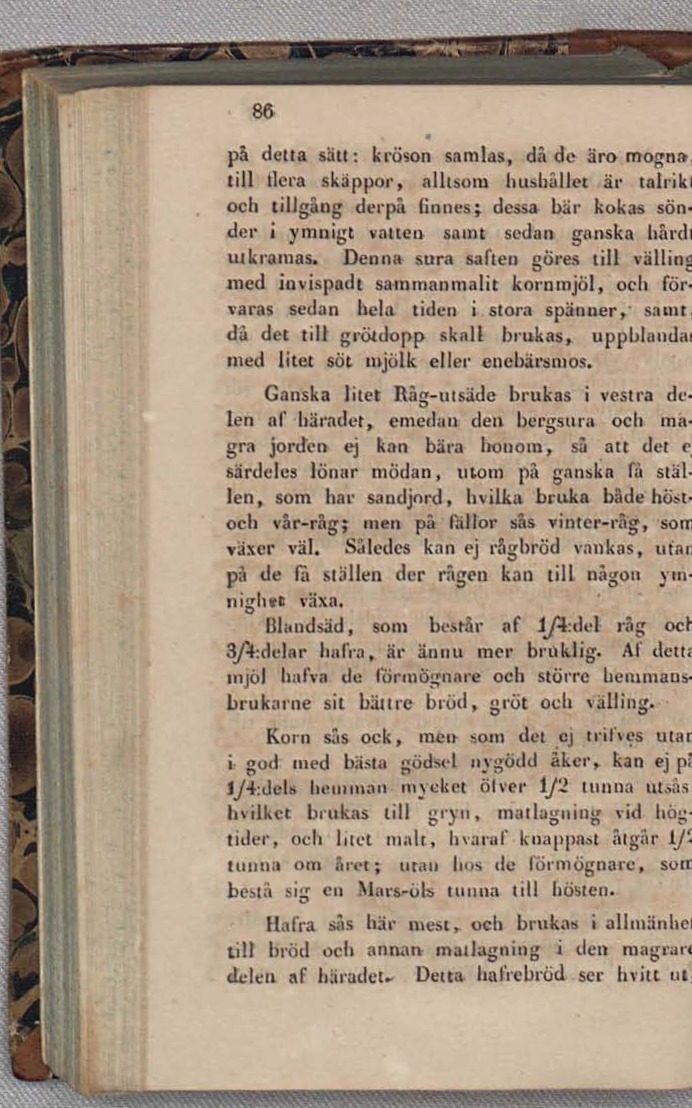 86
på detta sätt: kröson samlas, då de äro mogna,
till flera skäppor, alltsom hushållet är talrikt
och tillgång derpå finnes; dessa bär kokas sön-
der i ymnigt vatten samt sedan ganska hårdt
utkramas. Denna sura saften göres till välling
med invispadt sammanmalit kornmjöl, och för-
varas sedan hela tiden i stora spänner, samt,
då det till grötdopp skall brukas, uppblandas
med litet söt mjölk eller enebärsmos.
Ganska litet Råg-utsäde brukas i vestra de-
len af häradet, emedan den bergsura och ma-
gra jorden ej kan bära honom, så att det ej
särdeles lönar mödan, utom på ganska få stäl-
len, som har sandjord, hvilka bruka både höst-
och vår-råg; men på fällor sås vinter-råg, som
växer väl. Således kan ej rågbröd vankas, utan
på de få ställen der rågen kan till någon ym-
nighet växa.
Blandsäd, som består af 1/4:del råg och
3/4:delar hafra, är ännu mer bruklig. Af detta
mjöl hafva de förmögnare och större hemmans-
brukarne sit bättre bröd, gröt och välling.
Korn sås ock, men som det ej trifves utan
i god med bästa gödsel nygödd åker, kan ej på
1/4:dels hemman mycket öfver 1/2 tunna utsås,
hvilket brukas till gryn, matlagning vid hög-
tider, och litet malt, hvaraf knappast åtgår 1/2
tunna om året; utan hos de förmögnare, som
bestå sig en Mars-öls tunna till hösten.
Hafra sås här mest, och brukas i allmänhet
till bröd och annan matlagning i den magrare
delen af häradet. Detta hafrebröd ser hvitt ut,